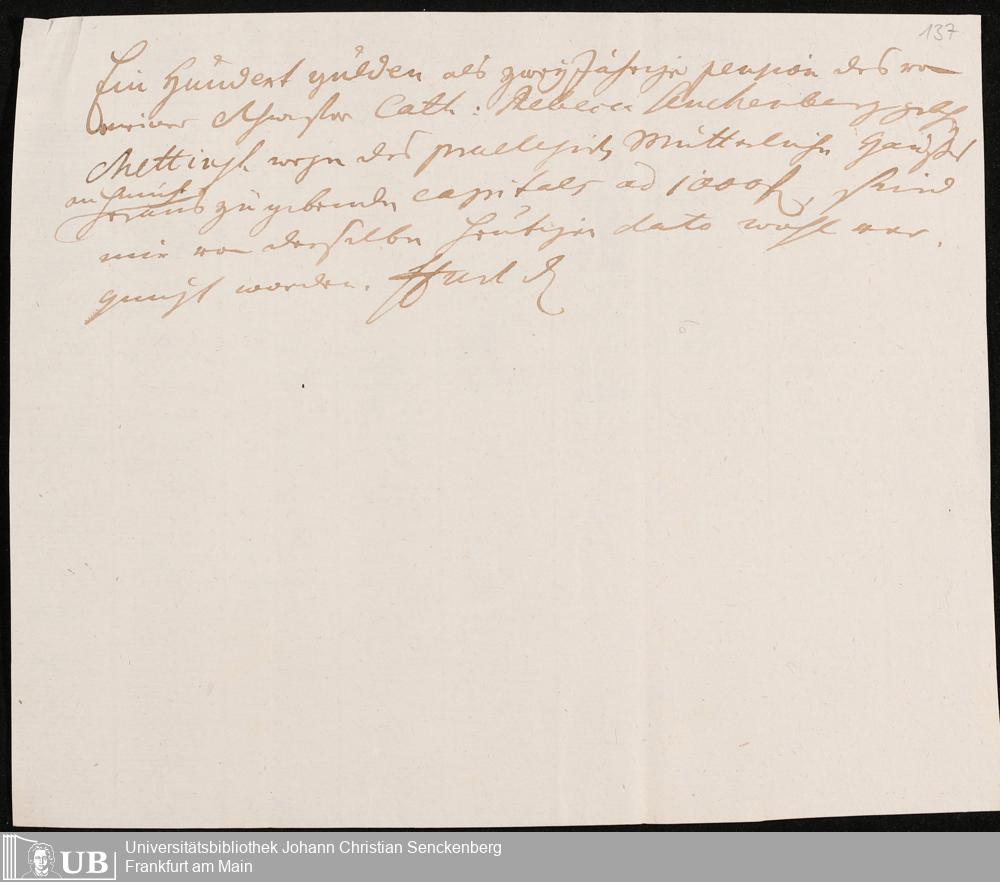 137
Ein Hundert gulden als zweyJährige pension des von
meiner Schwester Cath: Rebecca Auchenberg
Mettingh wegen des praelegirten Mütterlichen Haußes
an
heraus zu gebenden capitals ad 1000f, sind
mir von derselben heutigen dato wohl ver,
gnügt worden.
UB
Universitätsbibliothek Johann Christian Senckenberg
Frankfurt am Main